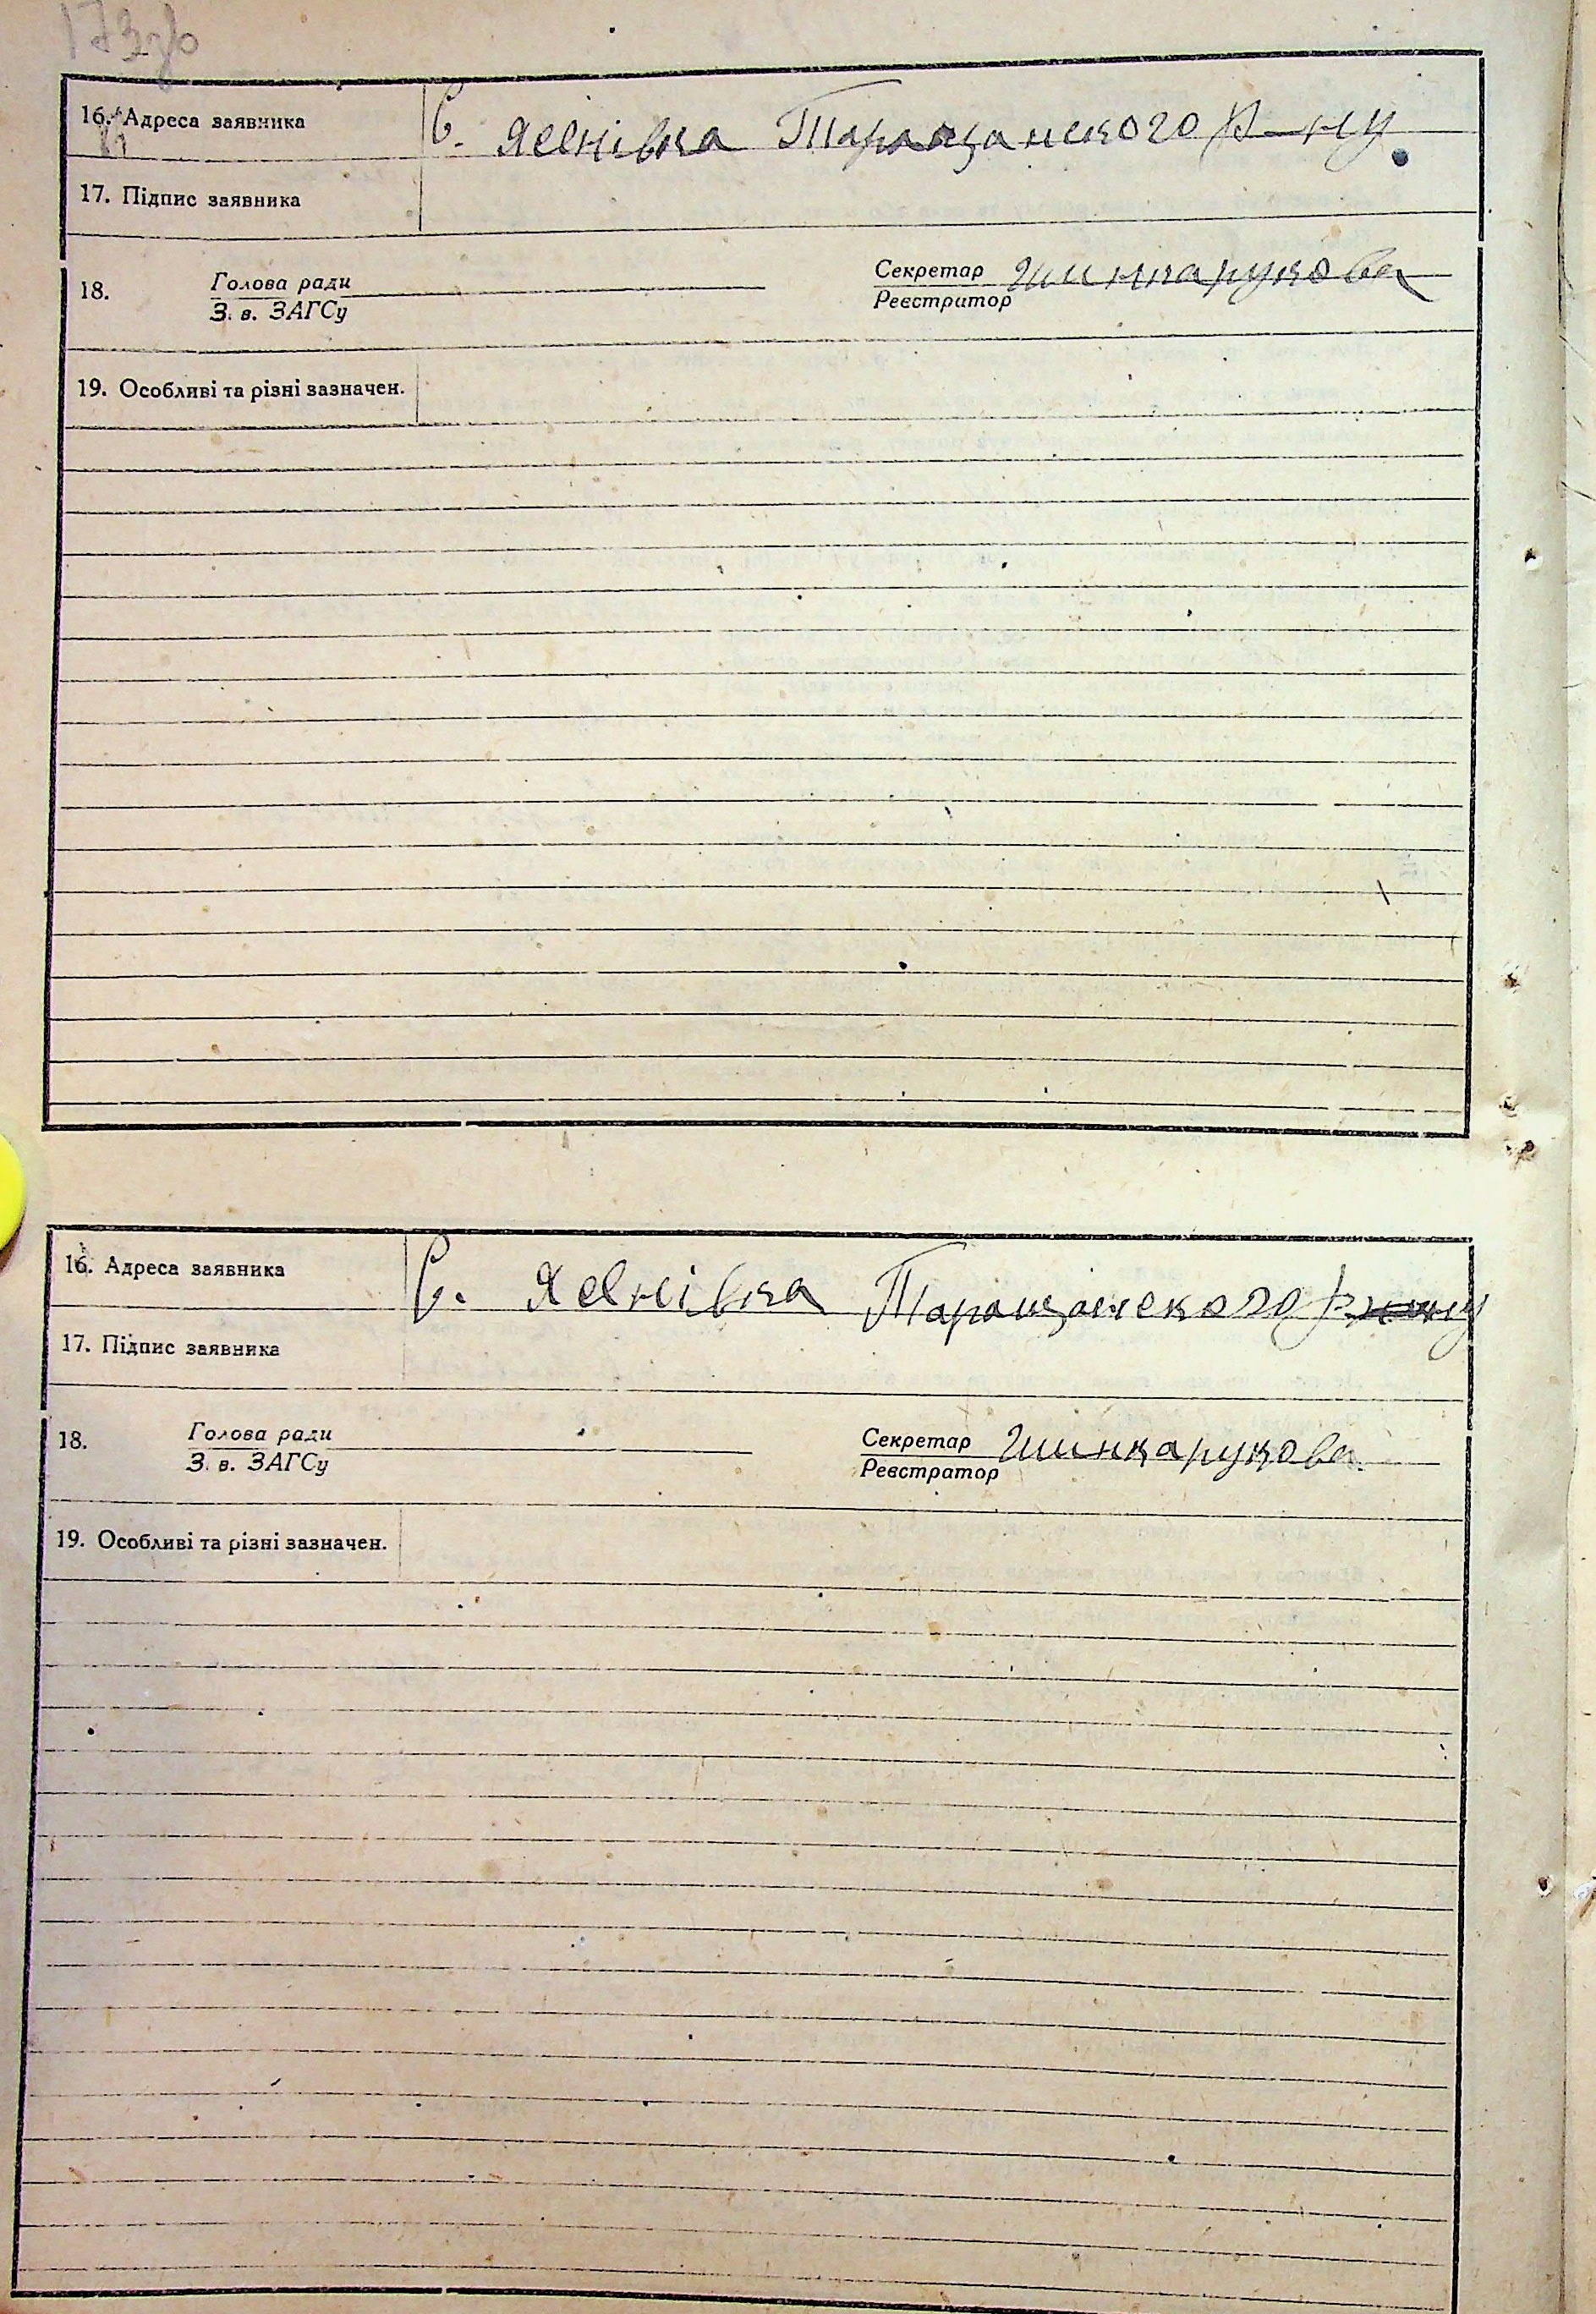 173зв
16. Адреса заявника С. Яснівка Таращанского р-ну.
17. Підпис заявника
18. Голова ради Секретар Шинкарукова
З. в. ЗАГСу Реєстратор
19. Особливі та різні зазначен.
16. Адреса заявника С. Яснівка Таращанского р-ну
17. Підпис заявника
18. Голова ради Секретар Шинкарукова.
З. в. ЗАГСу Реєстратор
19. Особливі та різні зазначен.